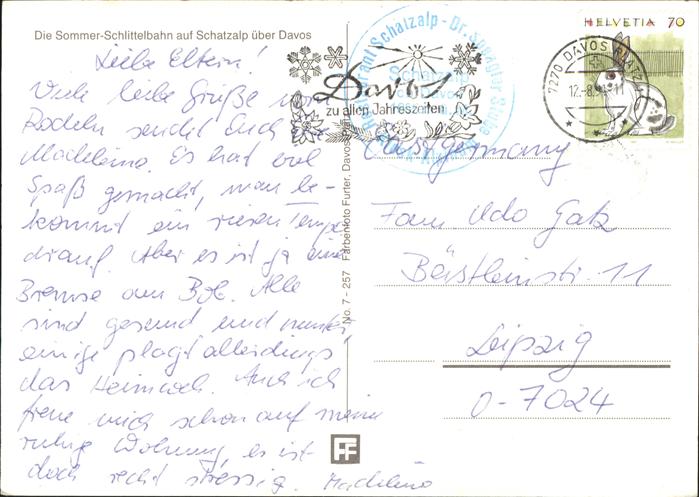 Die Sommer-Schlittelbahn auf Schatzalp über Davos
Liebe Eltern!
Viele liebe Grüße vom
Rodeln sendet Euch
Madeleine. Es hat viel
Spaß gemacht, man be-
kommt ein riesen Tempo
drauf. Aber es ist ja eine
Bremse am Bob. Alle
sind gesund und munter,
einige plagt allerdings
das Heimweh. Auch ich
freue mich schon auf meine
ruhige Wohnung, es ist
doch recht stressig. Madeleine
No. 7 - 257 Farbenfoto Furter, Davos
FF
Restaurant Schatzalp - Dr.
Davos
zu allen Jahreszeiten
HELVETIA 70
7270 DAVOS PLATZ 1
12.-8.
Ostgermany
Fam. Udo Gatz
Bästleinstr. 11
Leipzig
O-7024